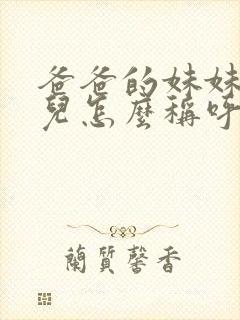 爸爸的妹妹
兒怎麼稱呼
蘭質馨香